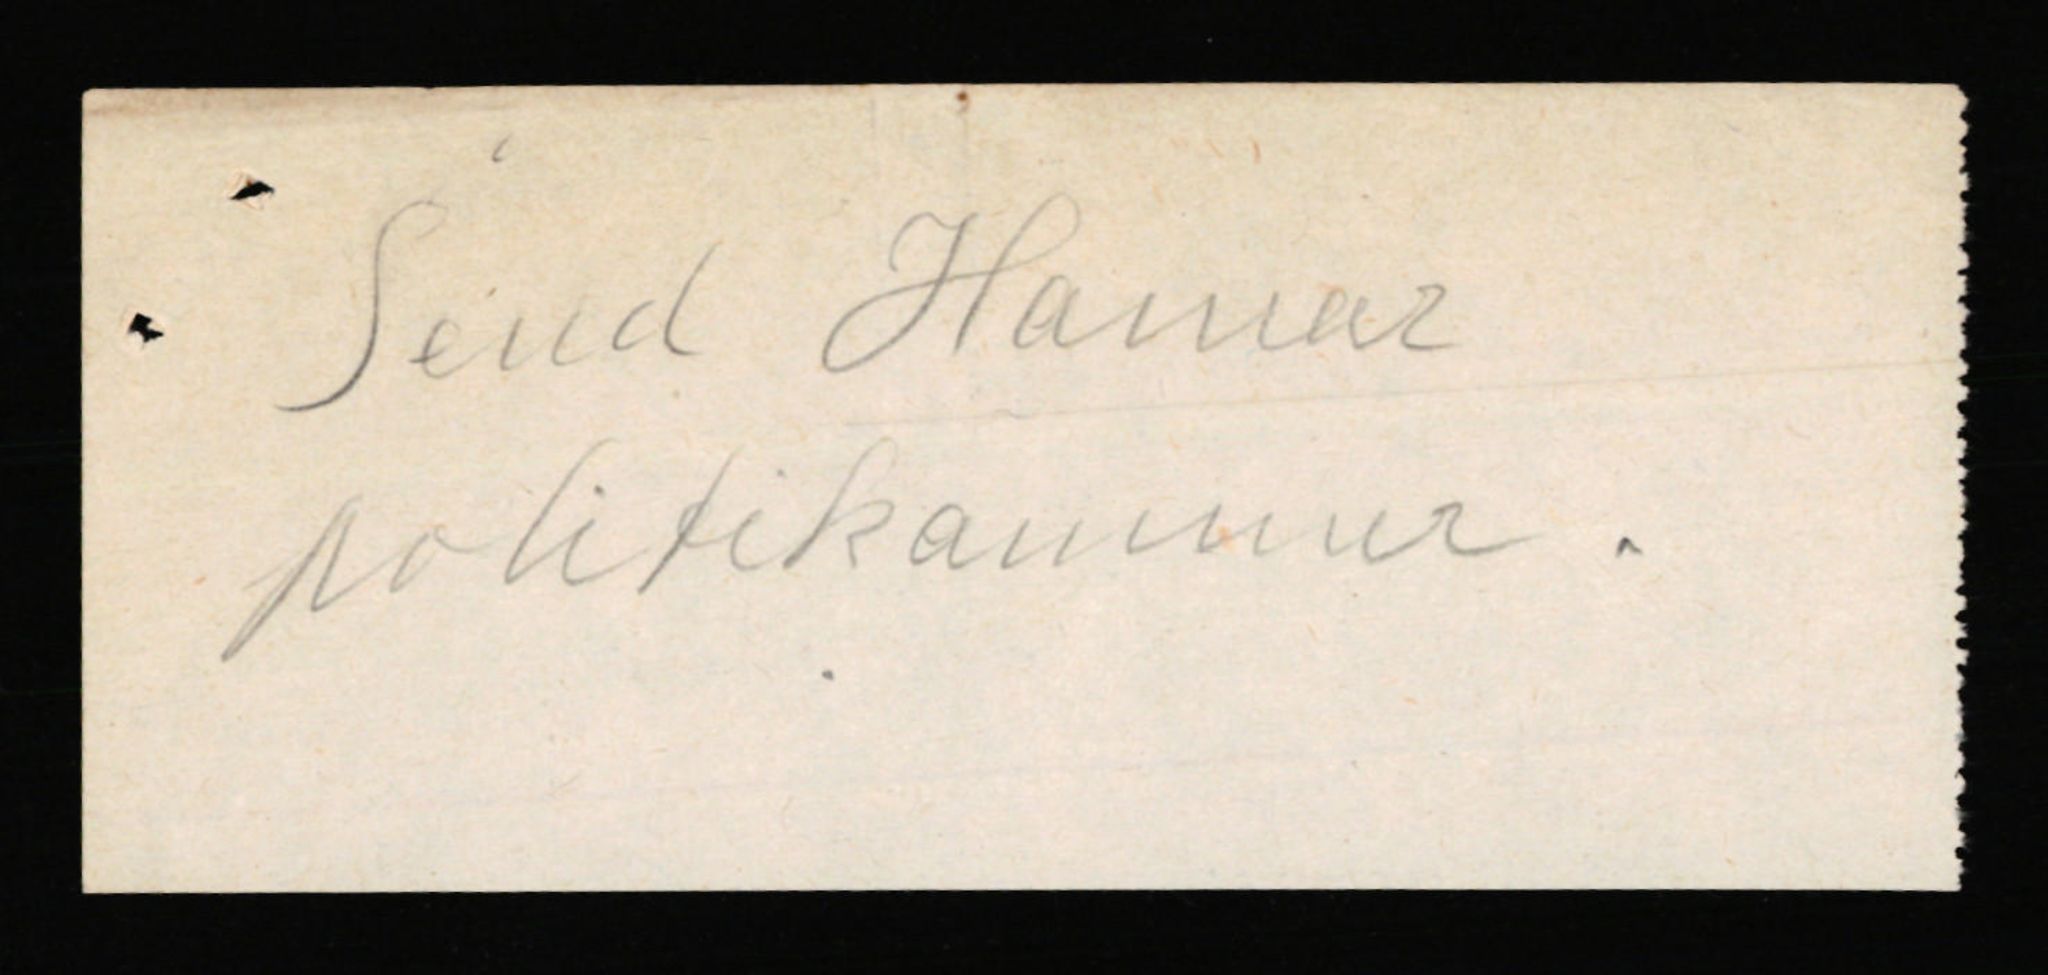 Send Hamar
politikammer.